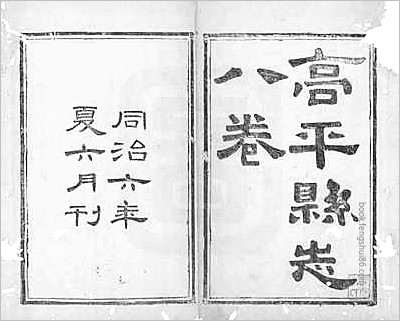 高平縣志
八卷
同治六年
夏六月刊
book.fengshui86.com